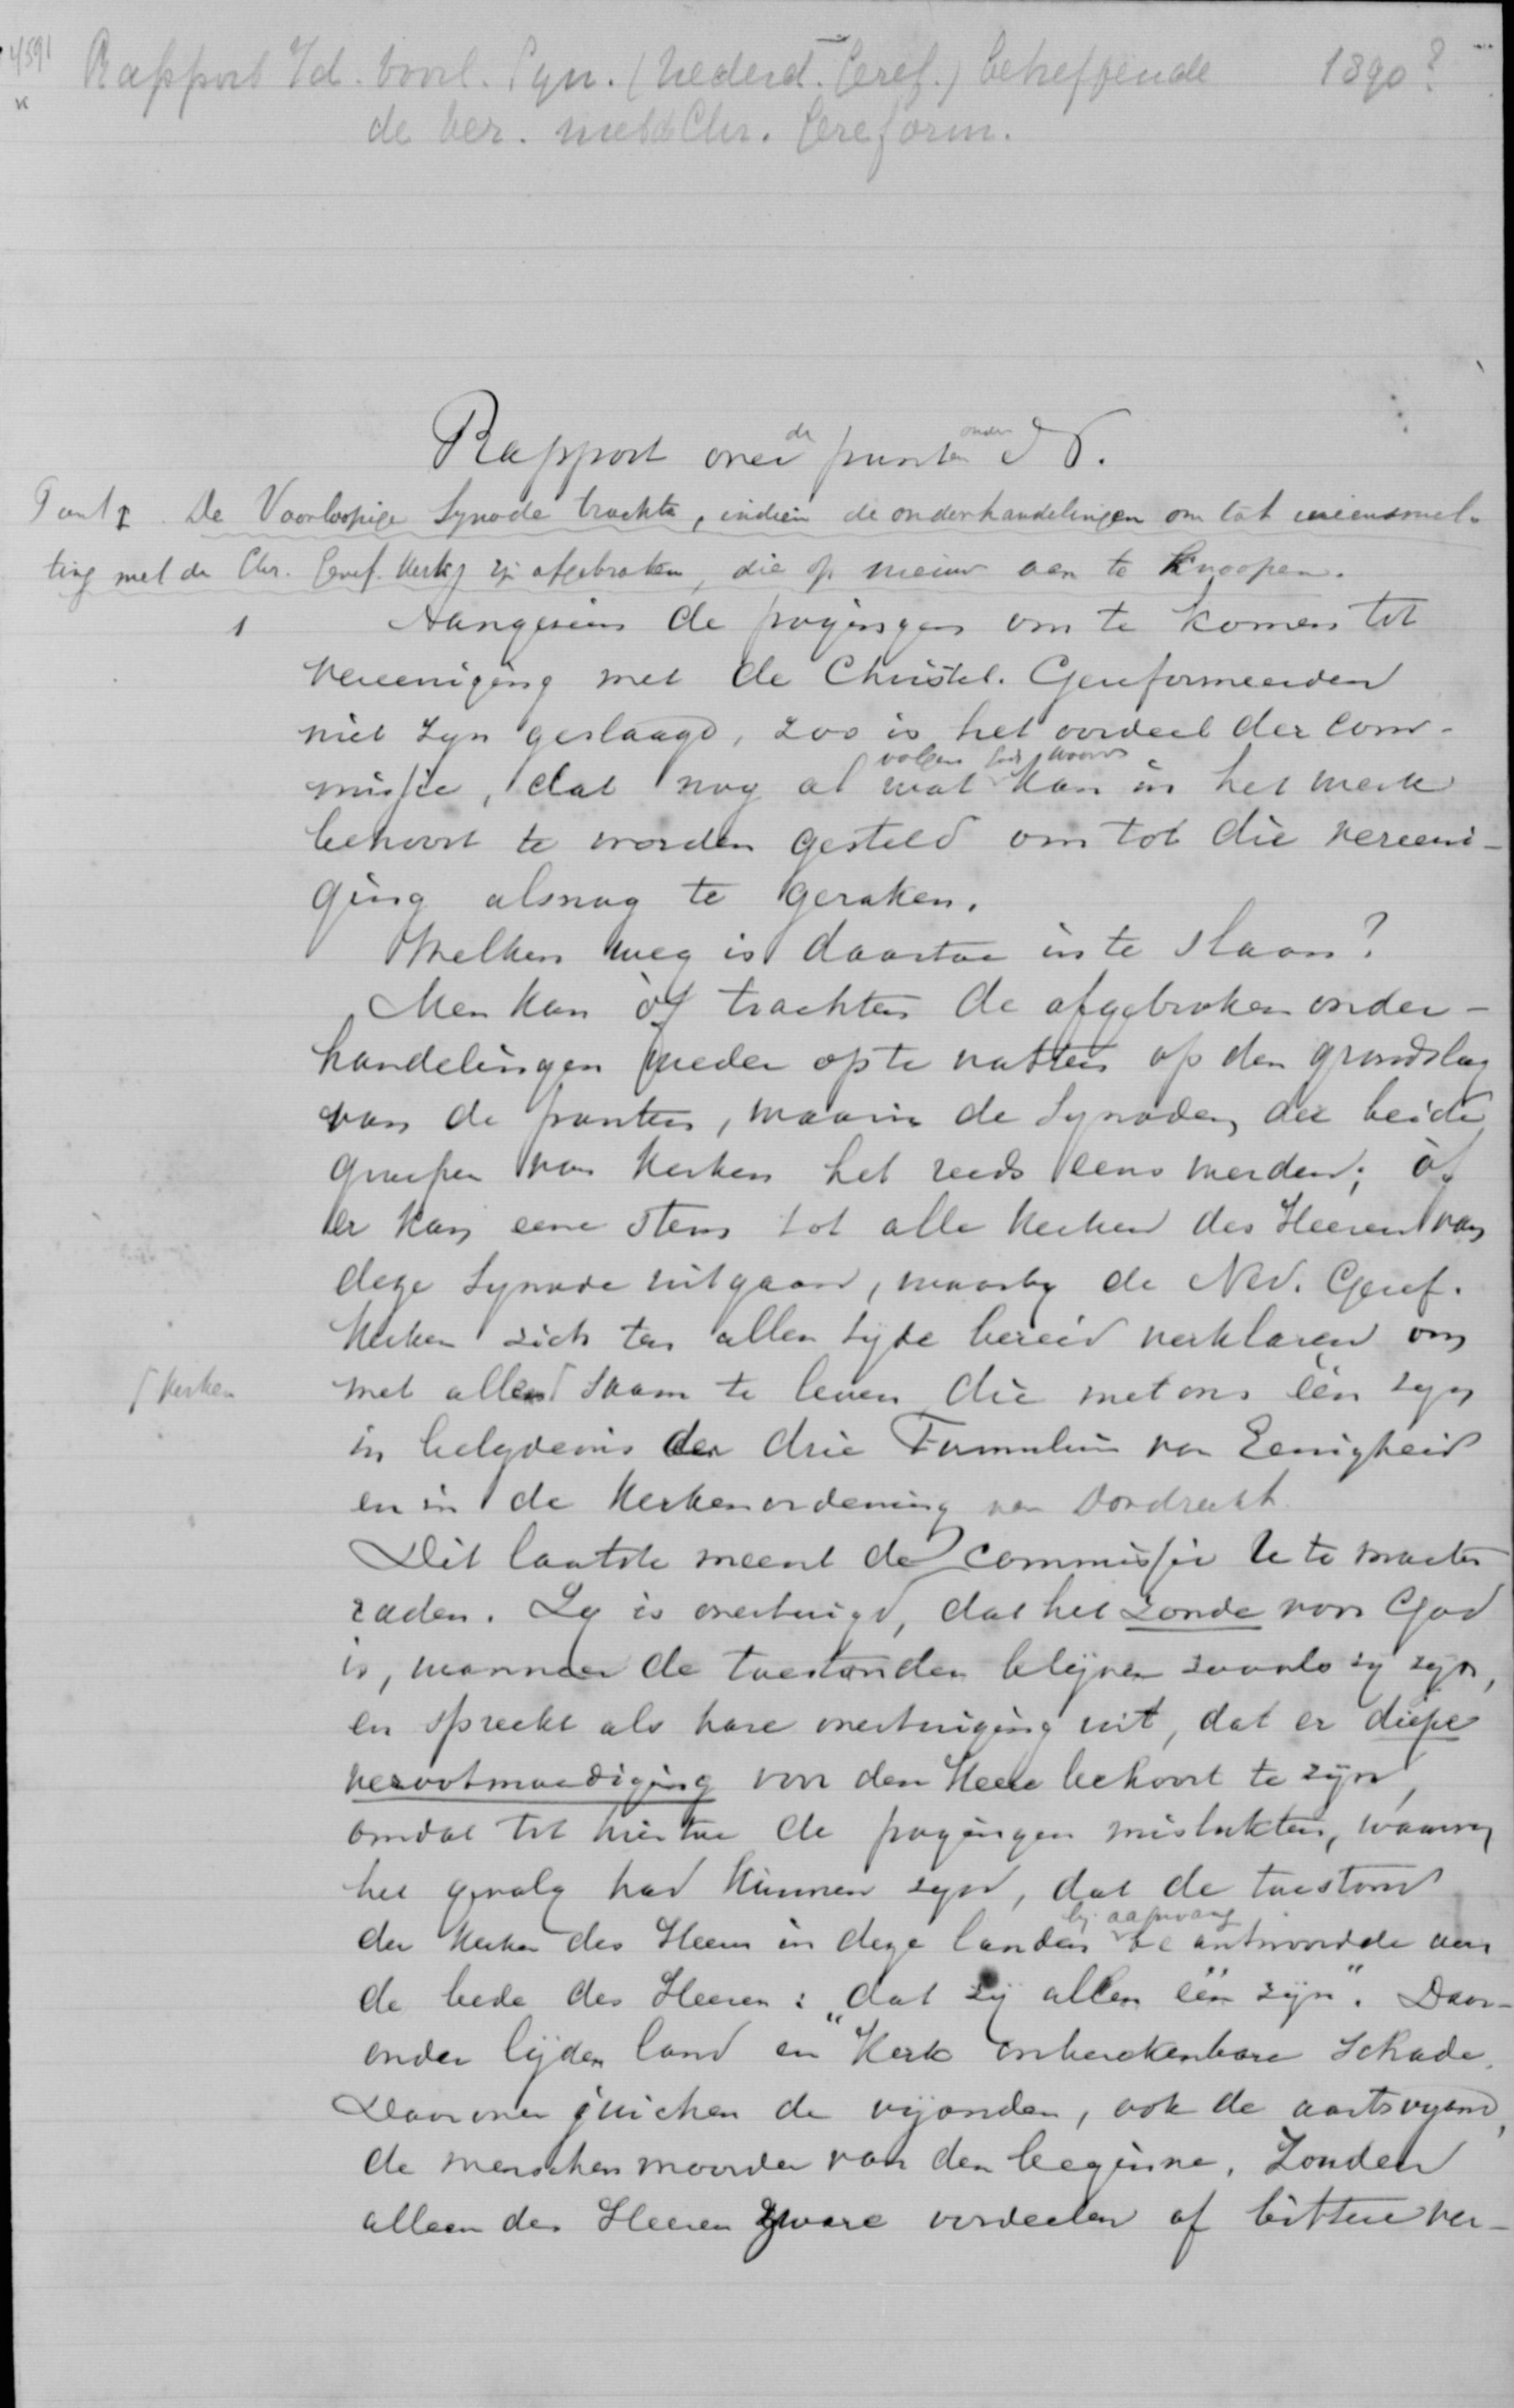 4591
Rapport v/d. voorl. Syn. (Nederd. Geref.) betreffende 1890?
de ver. met d Chr. Gereform.
Rapport over de punten onder N.
Punt 1 De Voorloopige Synode trachte, indien de onderhandelingen om tot ineensmel-
ting met de Chr. Geref. Kerk zijn afgebroken, die op nieuw aan te knoopen.
1 Aangezien de pogingen om te komen tot
vereeniging met de Christel. Gereformeerden
niet zyn geslaagd, zoo is het oordeel der com-
missie, dat nog al wat volgens Gods Woord kan in het werk
behoort te worden gesteld om tot die vereeni-
ging alsnog te geraken.
Welken weg is daartoe in te slaan?
Men kan òf trachten de afgebroken onder-
handelingen weder op te vatten op den grondslag
van de punten, waarin de Synoden der beide
groepen van Kerken het reeds eens werden; òf
er kan eene stem tot alle Kerken des Heeren van
deze Synode uitgaan, waarby de Ned. Geref.
Kerken zich ten allen tyde bereid verklaren om
met alle Kerken saam te leven die met ons één zyn
in belydenis der drie Formulieren van Eenigheid
en in de Kerkenordening van Dordrecht.
Dit laatste meent de commissie U te moeten
raden. Zy is overtuigd, dat het zonde voor God
is, wanneer de toestanden blijven zooals zy zyn,
en spreekt als hare overtuiging uit, dat er diepe
verootmoediging voor den Heere behoort te zijn,
omdat tot hiertoe de pogingen mislukten, waarvan
het gevolg had kunnen zyn, dat de toestand
der Kerken des Heeren in deze landen bij aanvang beantwoordde aan
de bede des Heeren: „dat zij allen één zijn". Daar-
onder lijden land en Kerk onberekenbare schade.
Daarover juichen de vijanden, ook de aartsvyand,
de menschenmoorder van den beginne. Zouden
alleen des Heeren zware oordeelen of bittere ver-